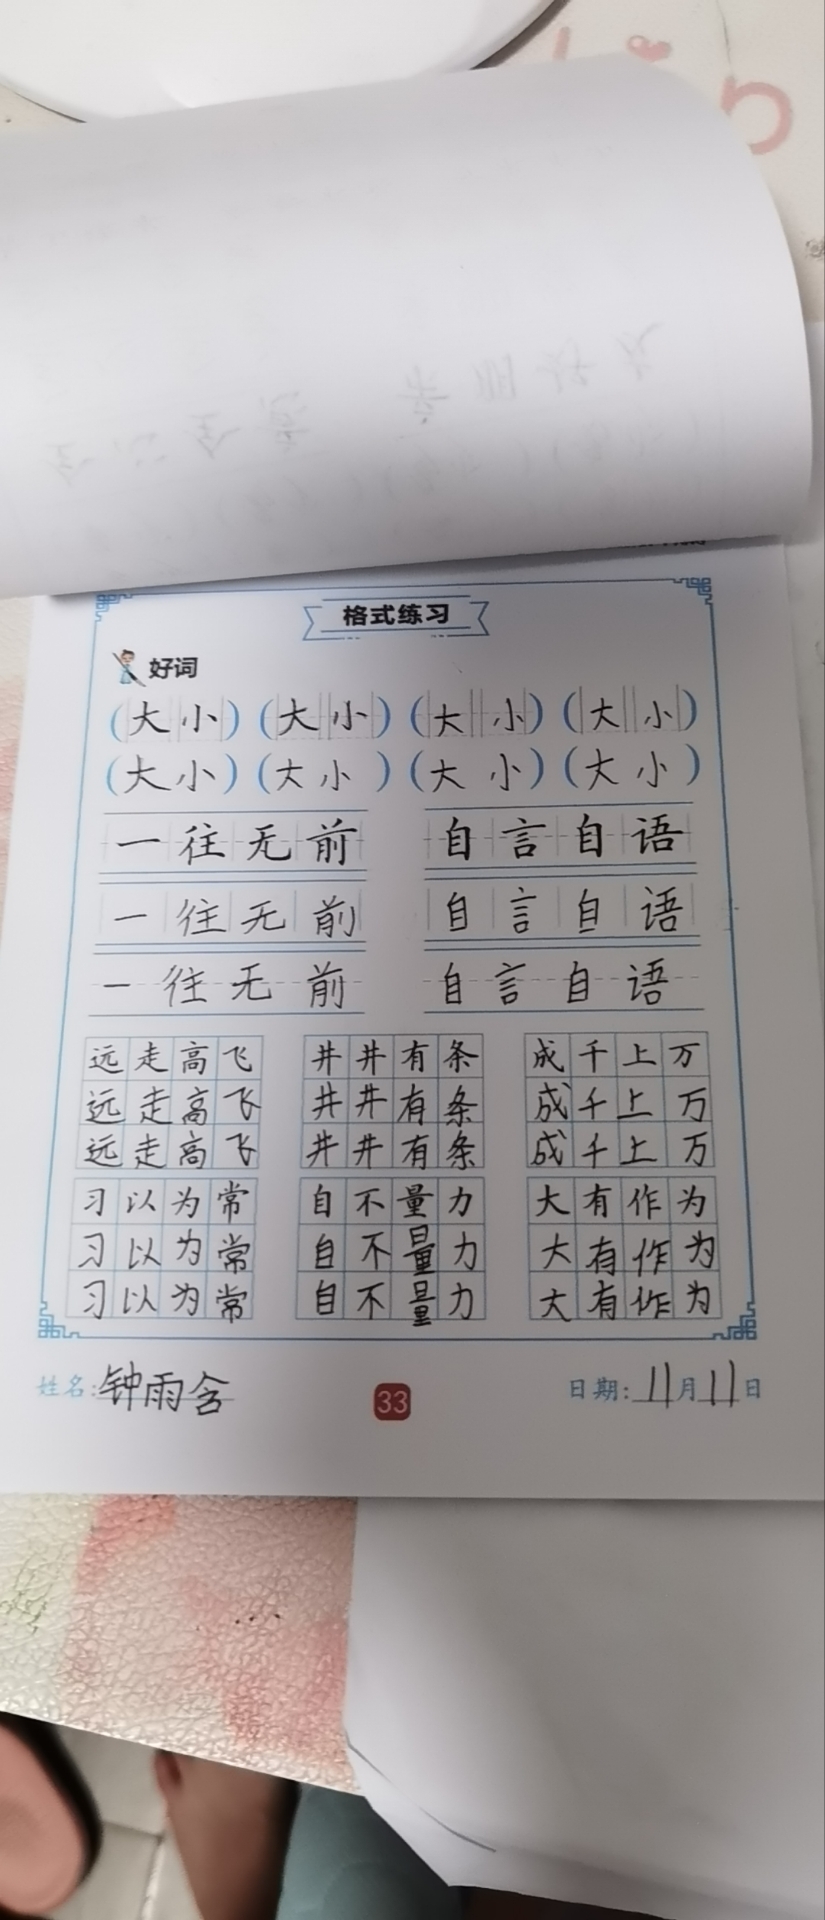 格式练习
好词
(大小) (大小) (大小) (大小)
(大小) (大小) (大小) (大小)
一往无前 自言自语
一往无前 自言自语
一往无前 自言自语
远走高飞 井井有条 成千上万
远走高飞 井井有条 成千上万
远走高飞 井井有条 成千上万
习以为常 自不量力 大有作为
习以为常 自不量力 大有作为
习以为常 自不量力 大有作为
姓名:钟雨含 33 日期:11月11日